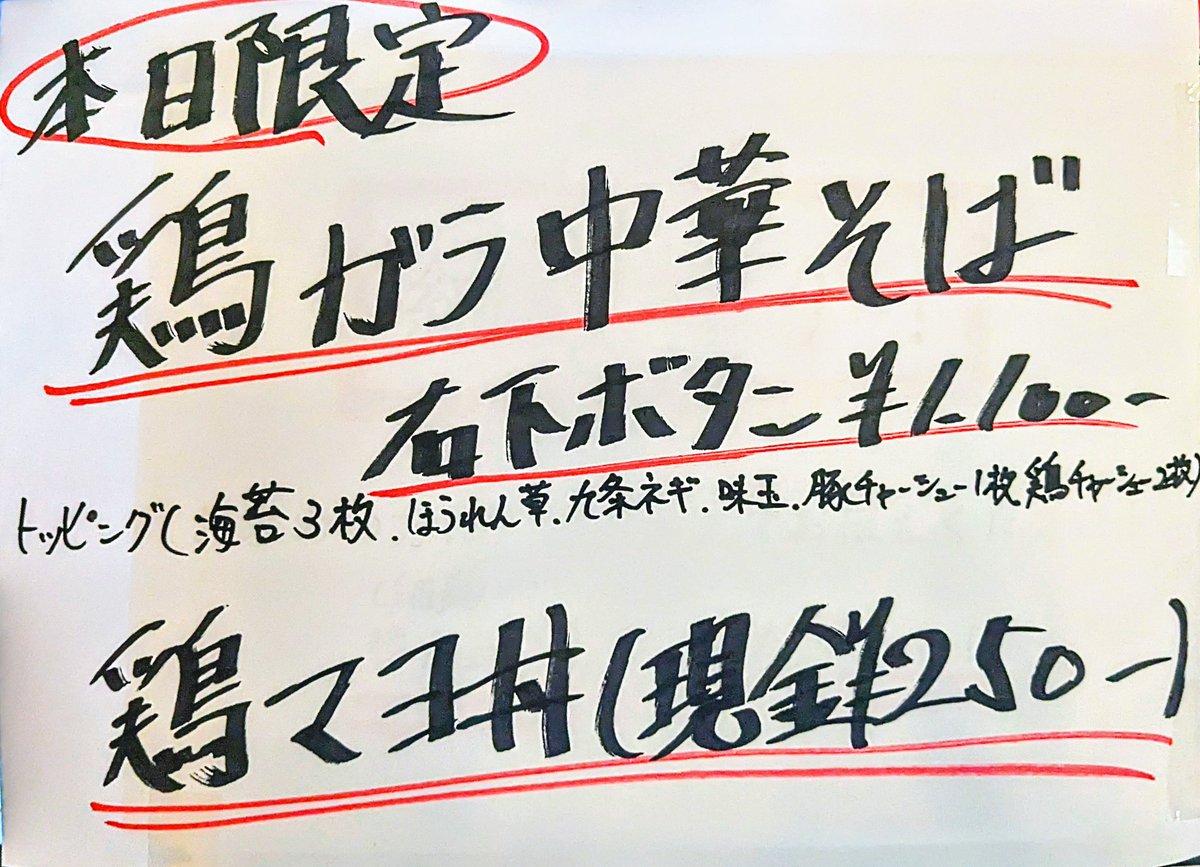 本日限定
鶏ガラ中華そば
右下ボタン ¥1.100-
トッピング(海苔3枚、ほうれん草、九条ネギ、味玉、豚チャーシュー1枚 鶏チャーシュー2枚)
鶏マヨ丼(現金250-)